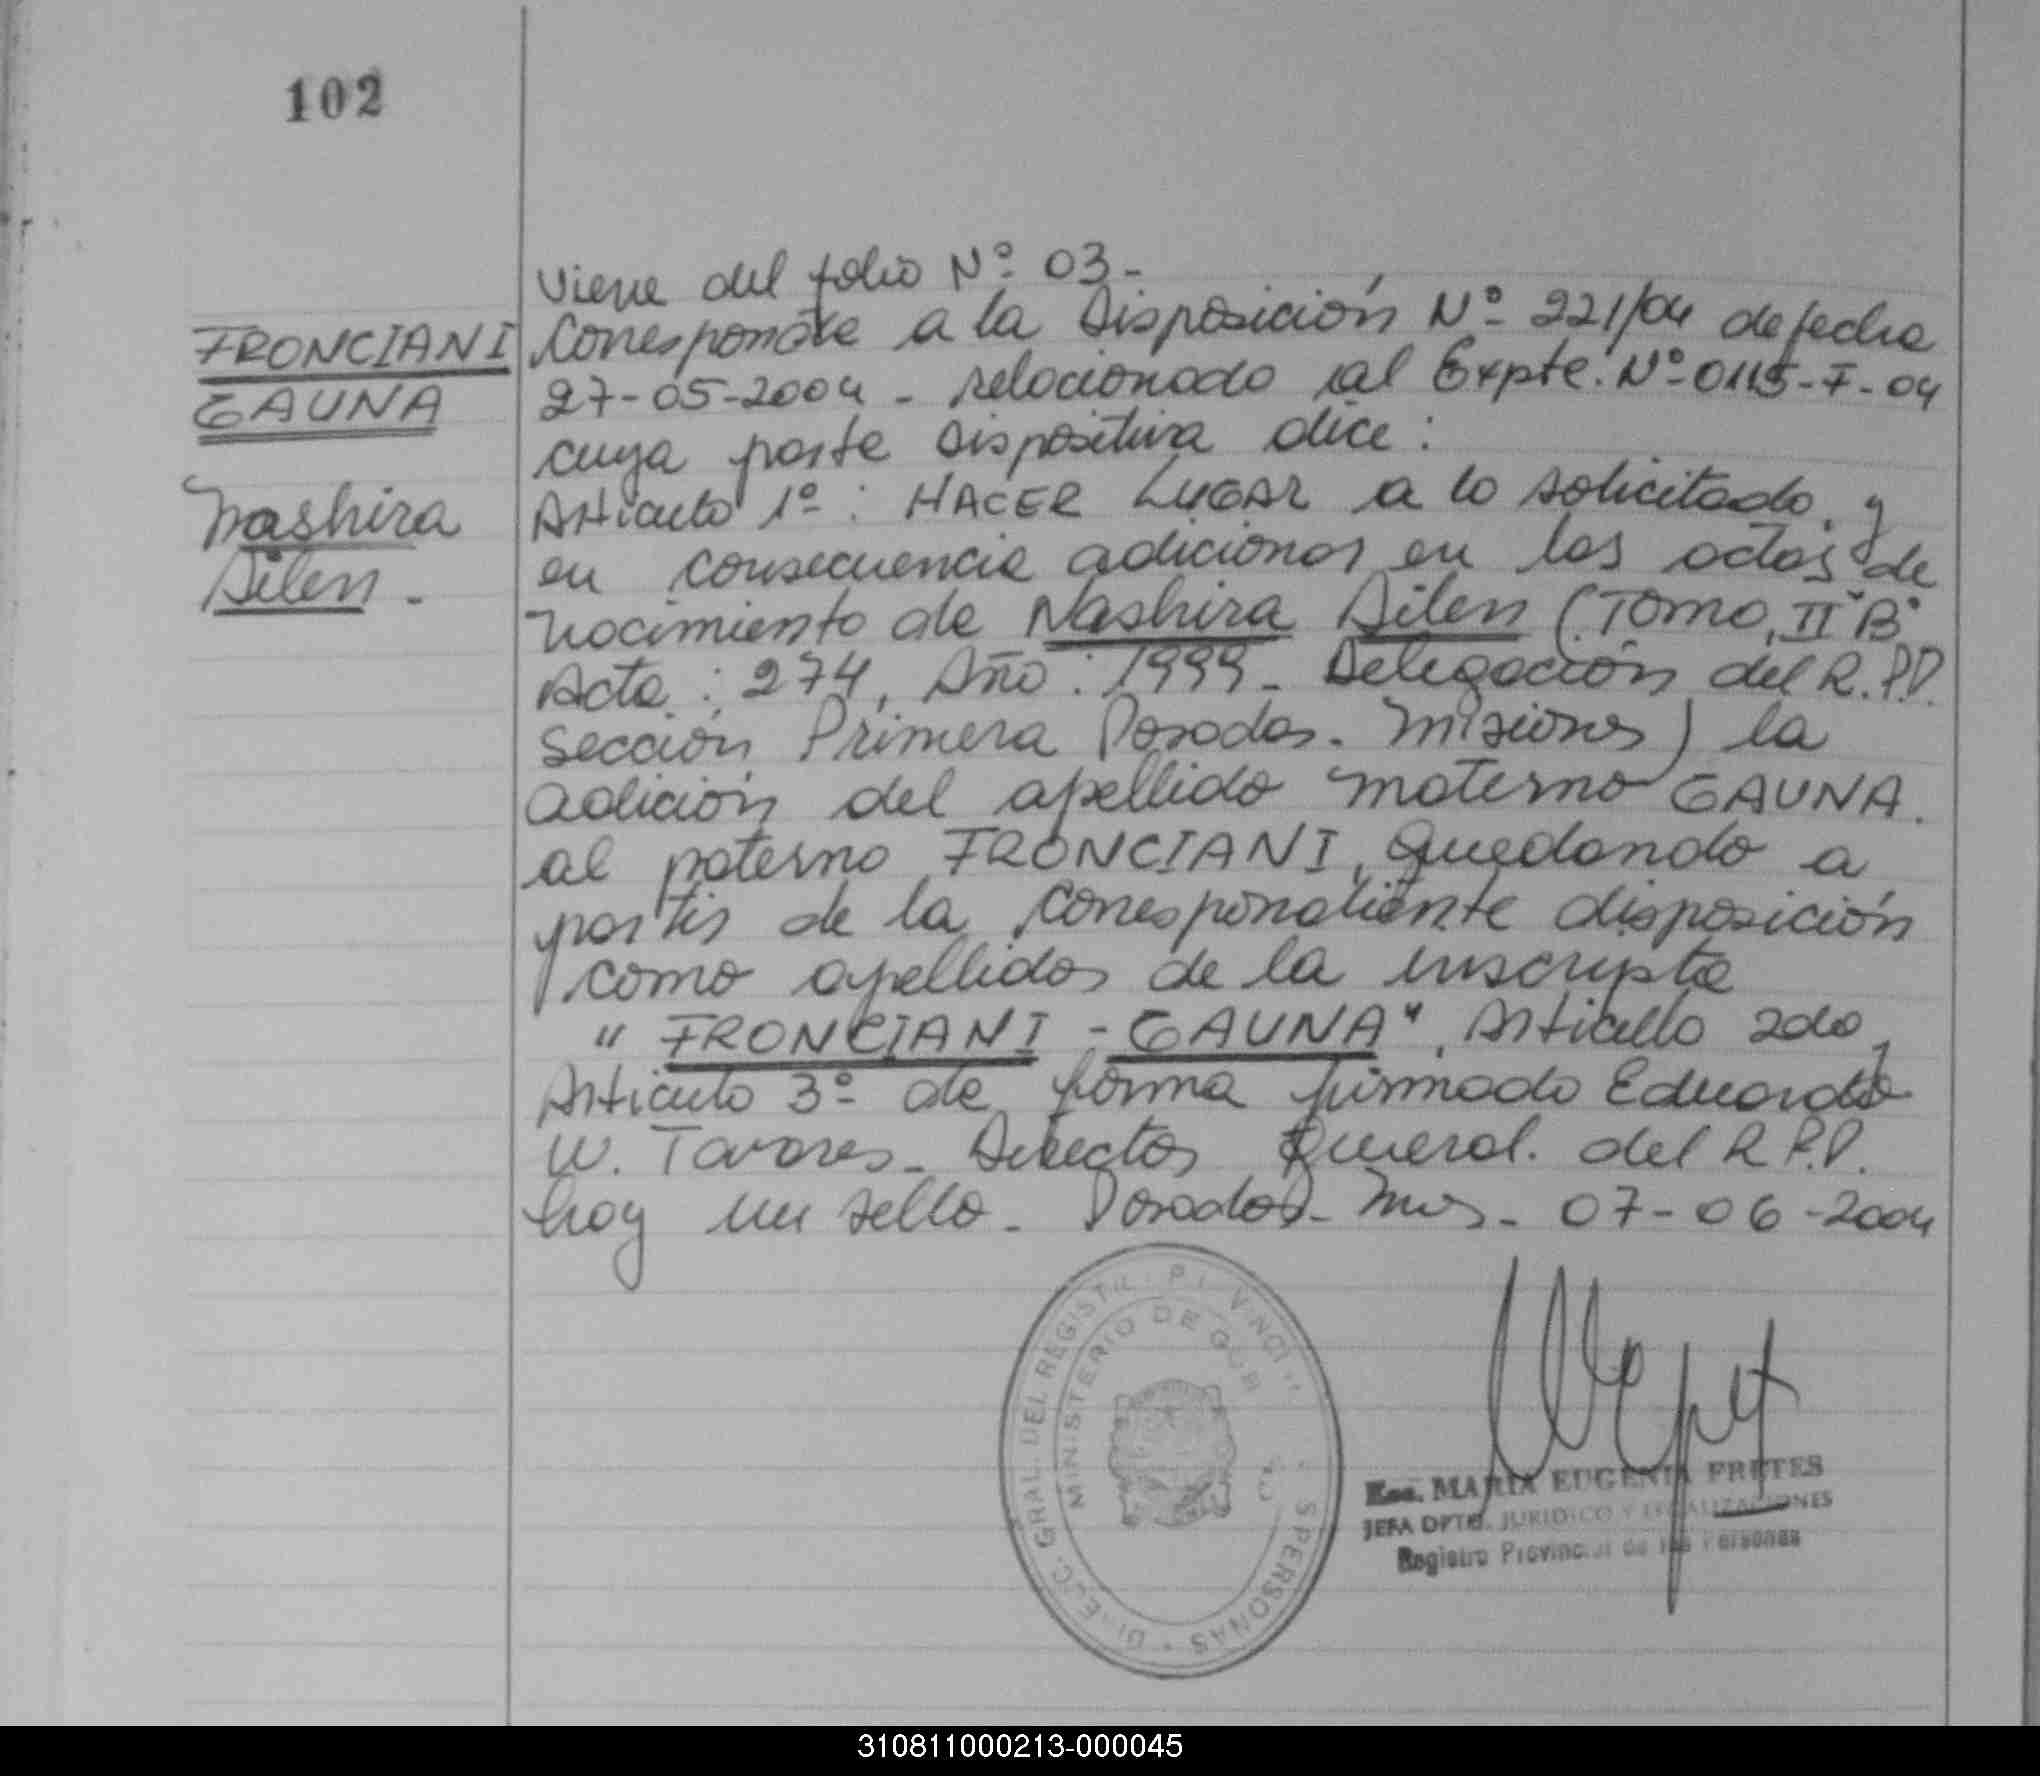 102
FRONCIANI
GAUNA
Nashira
Ailen.
Viene del folio Nº 03-
Corresponde a la Disposición Nº 221/04 de fecha
27-05-2004 - relacionado al Expte. Nº 0115-F-04
cuya parte dispositiva dice:
Articulo 1º: HACER LUGAR a lo solicitado, y
en consecuencia adicionar en las actas de
nacimiento de Nashira Ailen (Tomo, II "B"
Acta: 274, Año: 1999- Delegación del R.P.P.
Sección Primera Posadas. Misiones) la
adición del apellido materno GAUNA.
al paterno FRONCIANI, quedando a
partir de la correspondiente disposición
como apellidos de la inscripta
"FRONCIANI - GAUNA", Articulo 2do,
Articulo 3º de forma firmado Eduardo
W. Tavares- Director General. del R.P.P.
hay un sello- Posadas- Mnes- 07-06-2004
DIRECC. GRAL. DEL REGISTR PERSONAS
MINISTERIO DE GOBI
Esc. MARIA EUGENIA FRETES
JEFA DPTO. JURIDICO Y LEGALIZACIONES
Registro Provincial de las Personas
310811000213-000045